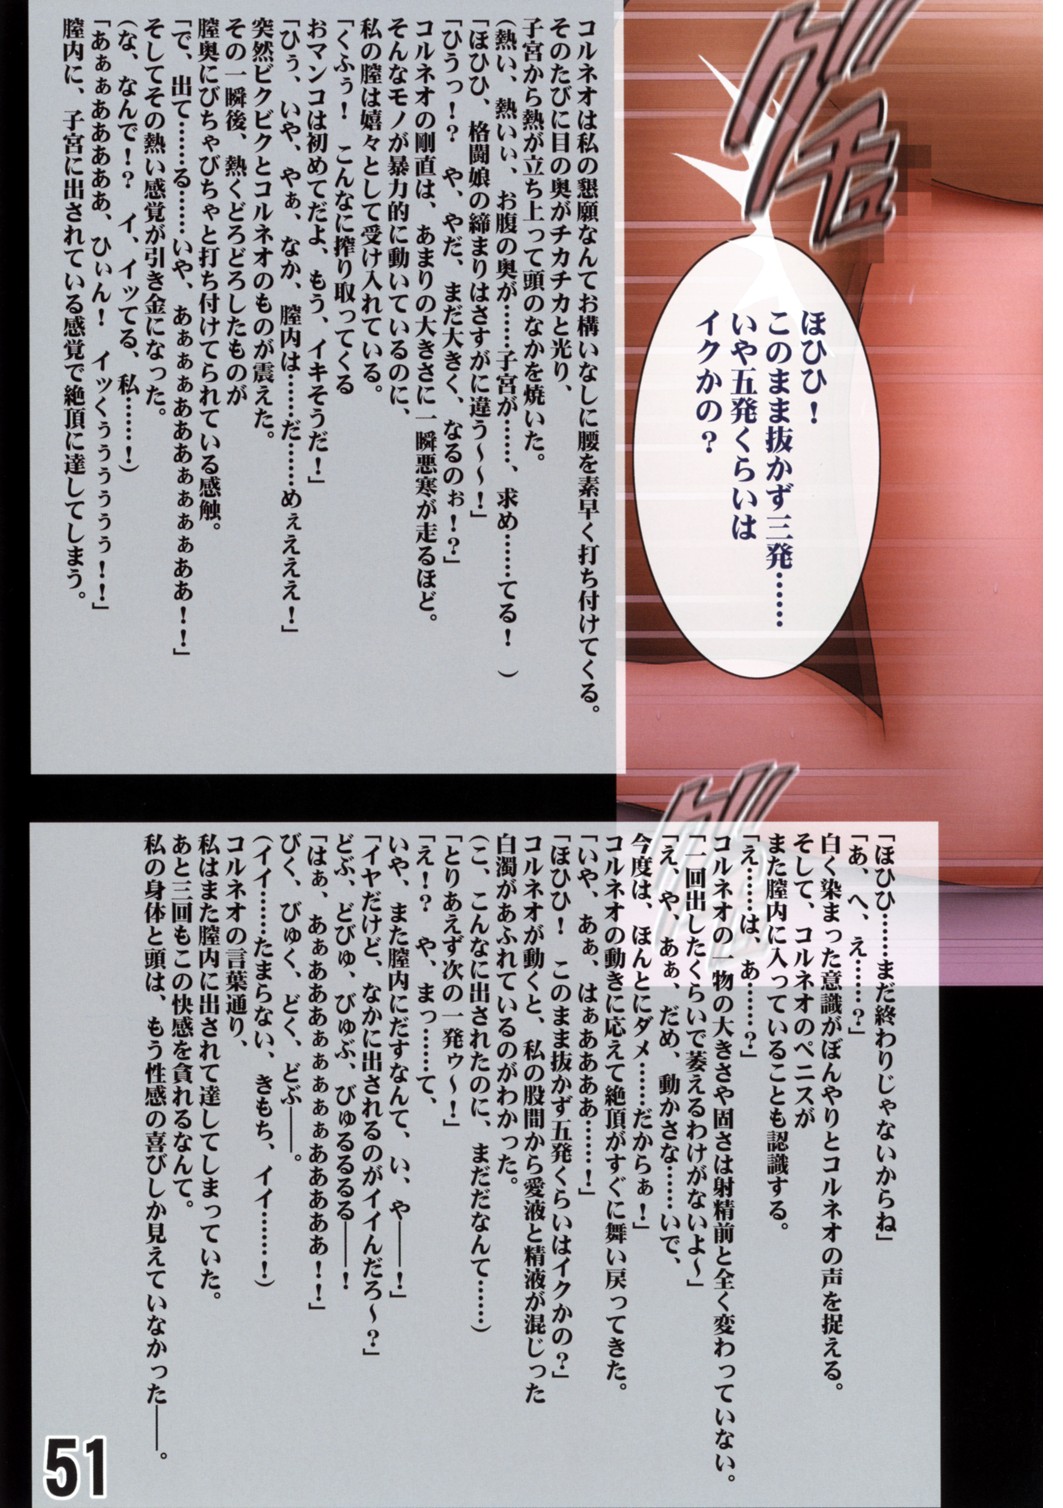 グチュ
ほひひ！
このまま抜かず三発……
いや五発くらいは
イクかの？
コルネオは私の懇願なんてお構いなしに腰を素早く打ち付けてくる。
そのたびに目の奥がチカチカと光り、
子宮から熱が立ち上って頭のなかを焼いた。
(熱い、熱いぃ、お腹の奥が……子宮が……、求め……てる！　)
「ほひひ、格闘娘の締まりはさすがに違う～～！」
「ひうっ！？　や、やだ、まだ大きく、なるのぉ！？」
コルネオの剛直は、あまりの大きさに一瞬悪寒が走るほど。
そんなモノが暴力的に動いているのに、
私の膣は嬉々として受け入れている。
「くふぅ！　こんなに搾り取ってくる
おマンコは初めてだよ、もう、イキそうだ！」
「ひぅ、いや、やぁ、なか、膣内は……だ……めぇえええ！」
突然ビクビクとコルネオのものが震えた。
その一瞬後、熱くどろどろしたものが
膣奥にびちゃびちゃと打ち付けてられている感触。
「で、出て……る……いや、あぁぁぁあああぁぁぁぁああ！！」
そしてその熱い感覚が引き金になった。
(な、なんで！？　イ、イッてる、私……！)
「あぁぁあああああ、ひぃん！　イッくぅぅぅぅぅ！！」
膣内に、子宮に出されている感覚で絶頂に達してしまう。
グチュ
「ほひひ……まだ終わりじゃないからね」
「あ、へ、え……？」
白く染まった意識がぼんやりとコルネオの声を捉える。
そして、コルネオのペニスが
また膣内に入っていることも認識する。
「え……は、あ……？」
コルネオの一物の大きさや固さは射精前と全く変わっていない。
「一回出したくらいで萎えるわけがないよ～」
「え、や、あぁ、だめ、動かさな……いで、
今度は、ほんとにダメ……だからぁ！」
コルネオの動きに応えて絶頂がすぐに舞い戻ってきた。
「いや、あぁ、はぁああああ……！」
「ほひひ！　このまま抜かず五発くらいはイクかの？」
コルネオが動くと、私の股間から愛液と精液が混じった
白濁があふれているのがわかった。
(こ、こんなに出されたのに、まだだなんて……)
「とりあえず次の一発ゥ～！」
「え！？　や、まっ……て、
いや、また膣内にだすなんて、い、や――！」
「イヤだけど、なかに出されるのがイイんだろ～？」
どぶ、どびゅ、びゅぶ、びゅるるるる――！
「はぁ、あぁあああぁぁぁぁぁあああああ！！」
びく、びゅく、どく、どぶ――。
(イイ……たまらない、きもち、イイ……！)
コルネオの言葉通り、
私はまた膣内に出されて達してしまっていた。
あと三回もこの快感を貪れるなんて。
私の身体と頭は、もう性感の喜びしか見えていなかった――。
51